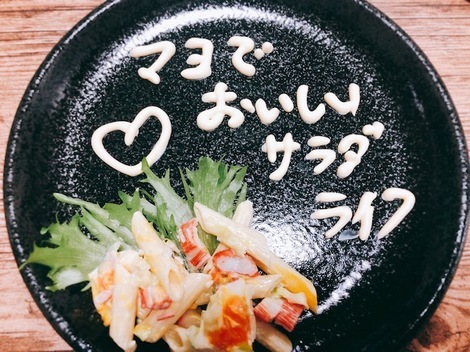 マヨで
おいしい
サラダ
ライフ